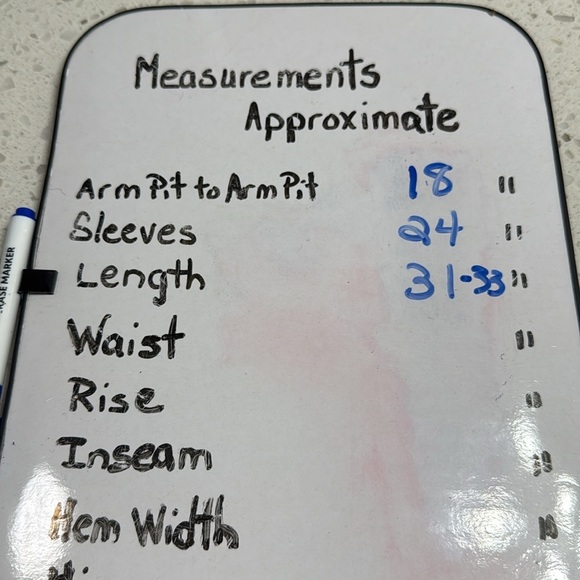 Measurements
Approximate
Arm Pit to Arm Pit 18 "
Sleeves 24 "
Length 31-33 "
Waist "
Rise "
Inseam "
Hem Width "
ASE MARKER